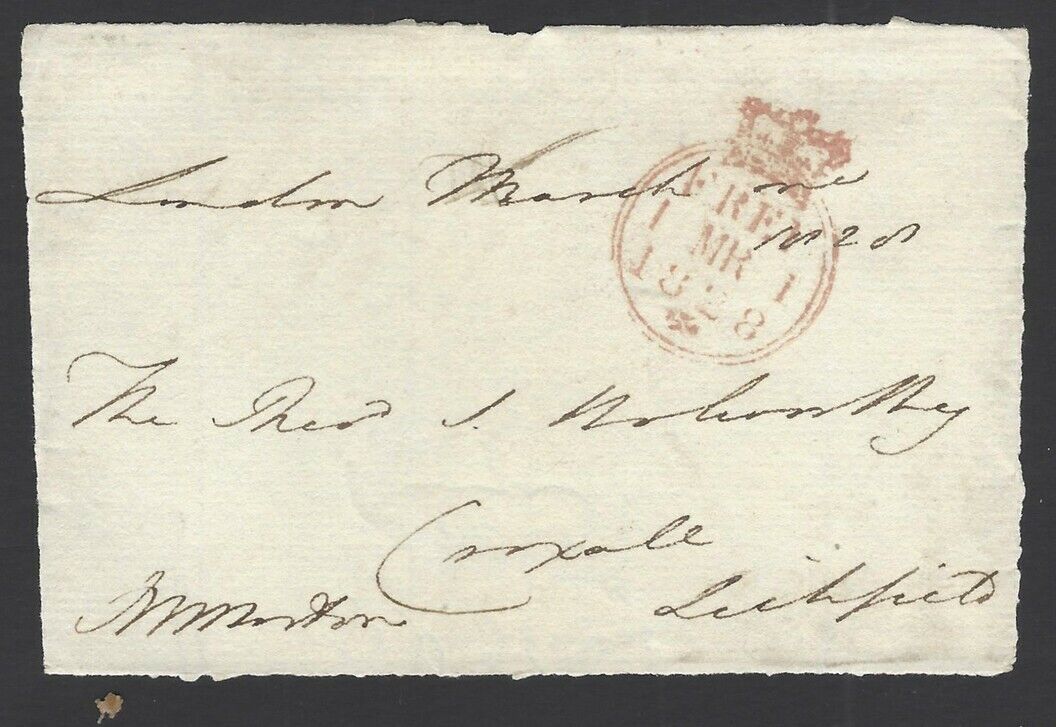 London March one
1828
FREE
1 MR 1
1828
The Revd S. Holworthy
Croxall
Lichfield